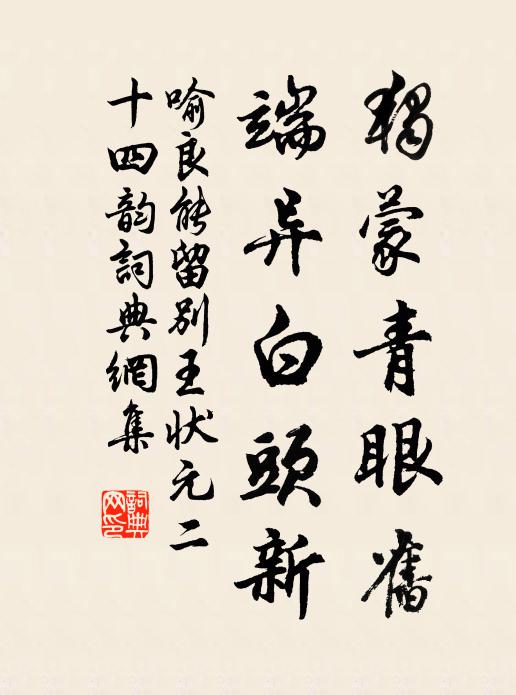 獨蒙青眼舊
端异白頭新
喻良能留别王状元二
十四韵詞典網集
詞典网印